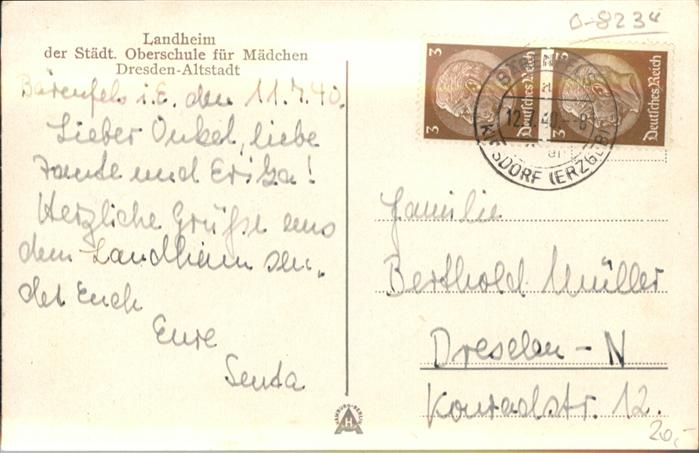 0-8234
Landheim
der Städt. Oberschule für Mädchen
Dresden-Altstadt
Bärenfels i.E. den 11.7.40.
Lieber Onkel, liebe
Tante und Erika!
Herzliche Grüße aus
dem Landheim sen-
det Euch
Eure
Senta
3
Deutsches Reich
3
Deutsches Reich
KIPSDORF (ERZGEB)
Familie
Berthold Müller
Dresden-N
Konradstr. 12.
20,-